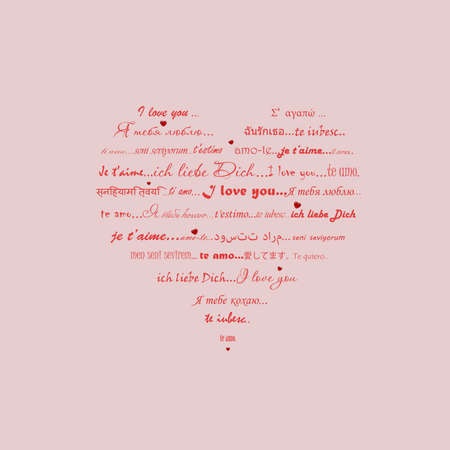 I love you ... Σ' αγαπώ ...
Я тебя люблю... ฉันรักเธอ...te iubesc..
te amo...seni seviyorum...t'estimo amo-te...je t'aime...ti amo..
Je t'aime...ich liebe Dich...I love you...te amo.
ti amo...I love you...Я тебя люблю..
te amo...Я тебе кохаю...t'estimo...te iubesc..ich liebe Dich
je t'aime...amo-te... دوستت دارم...seni seviyorum
men seni sevirem...te amo...愛してます。Te quiero..
ich liebe Dich...I love you
Я тебе кохаю...
te iubesc..
te amo.